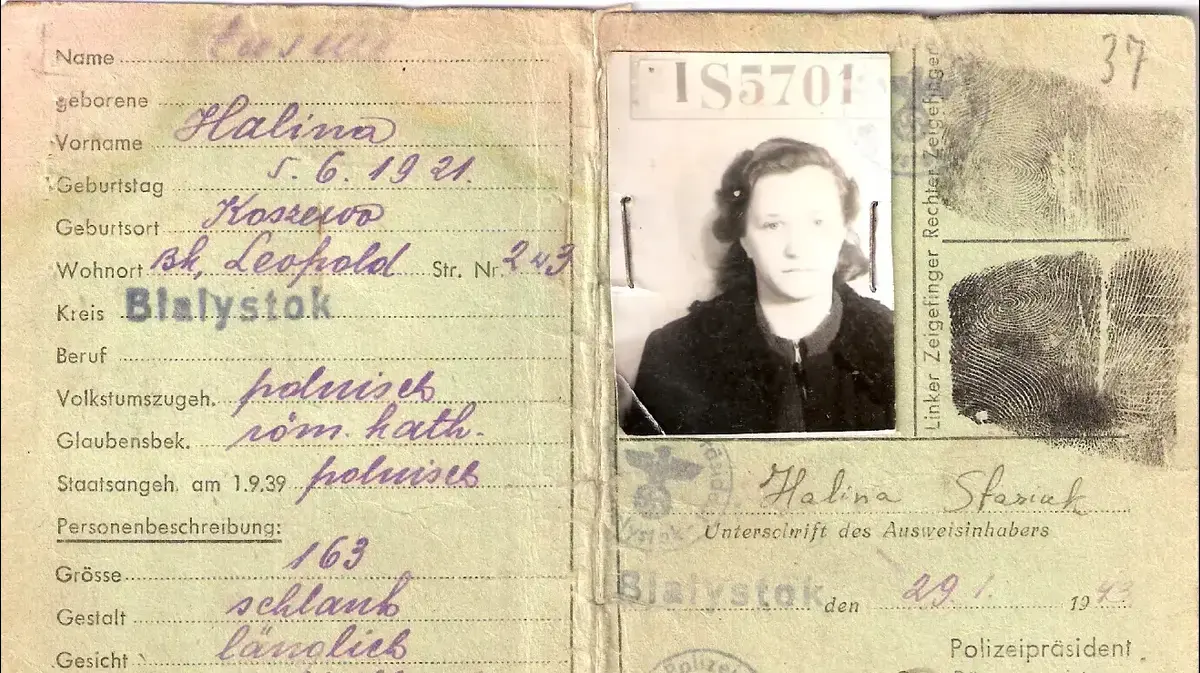 Name
geborene
Vorname Halina
Geburtstag 5. 6. 1921.
Geburtsort Koszewo
Wohnort Bk, Leopold Str. Nr. 243
Kreis Bialystok
Beruf
Volkstumszugeh. polnisch
Glaubensbek. röm. kath.
Staatsangeh. am 1.9.39 polnisch
Personenbeschreibung:
Grösse 163
Gestalt schlank
Gesicht länglich
37
IS5701
Rechter Zeigefinger
Linker Zeigefinger
Halina Stasiuk
Unterschrift des Ausweisinhabers
Bialystok den 29 1. 1943
Polizeipräsident
Polizei